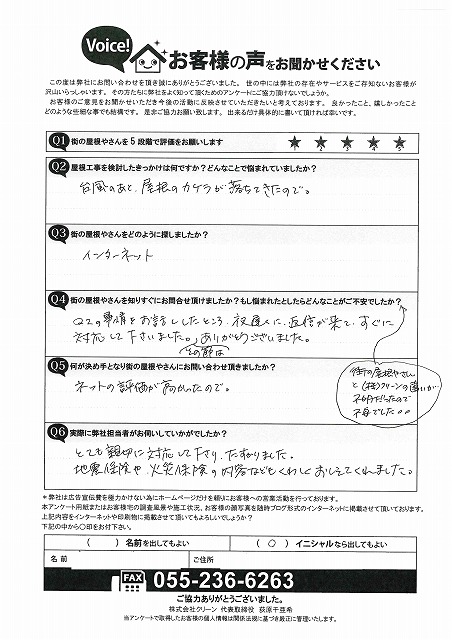 Voice!
お客様の声をお聞かせください
この度は弊社にお問い合わせを頂き誠にありがとうございました。 世の中には弊社の存在やサービスをご存知ないお客様が
沢山いらっしゃいます。 その方たちに弊社をよく知って頂くためのアンケートにご協力頂けないでしょうか。
お客様のご意見をお聞かせいただき今後の活動に反映させていただきたいと考えております。 良かったこと、嬉しかったこと
どのような些細な事でも結構です。 是非ご協力お願い致します。 出来るだけ具体的に書いて頂ければ幸いです。
Q1 街の屋根やさんを5段階で評価をお願いします
1 2 3 4 5
Q2 屋根工事を検討したきっかけは何ですか？どんなことで悩まれていましたか？
台風のあと、屋根のカケラが落ちてきたので。
Q3 街の屋根やさんをどのように探しましたか？
インターネット
Q4 街の屋根やさんを知りすぐにお問合せ頂けましたか？もし悩まれたとしたらどんなことがご不安でしたか？
Q2の事情をお話ししたところ、夜遅くに、返信が来て、すぐに
対応して下さいました。ありがとうございました。
その節は
街の屋根やさん
と(株)クリーンの違いが…
不明だったので
不安でした。。
Q5 何が決め手となり街の屋根やさんにお問い合わせ頂きましたか？
ネットの評価が高かったので。
Q6 実際に弊社担当者がお伺いしていかがでしたか？
とても親切に対応して下さり、たすかりました。
地震保険や、火災保険の内容などもくわしくおしえてくれました。
＊弊社は広告宣伝費を極力かけない為にホームページだけを頼りにお客様への営業活動を行っております。
本アンケート用紙またはお客様宅の調査風景や施工状況、お客様の顔写真を随時ブログ形式のインターネットに掲載させて頂いております。
上記内容をインターネットや印刷物に掲載させて頂いてもよろしいでしょうか？
下記の中から〇印をお付下さい。
（ ）名前を出してもよい （ ○ ）イニシャルなら出してもよい
名前 ご住所
FAX 055-236-6263
ご協力ありがとうございました。
株式会社クリーン 代表取締役 荻原千亜希
当アンケートで取得したお客様の個人情報は関係法規に基づき厳正に管理いたします。